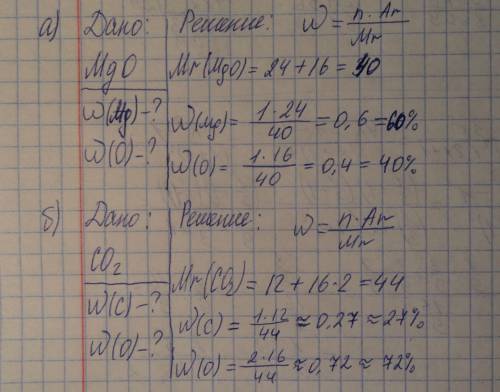 а) Дано: Решение: W = n·Ar/Mr
MgO Mr(MgO) = 24+16 = 40
W(Mg)-? W(Mg) = 1·24/40 = 0,6 = 60%
W(O)-? W(O) = 1·16/40 = 0,4 = 40%
б) Дано: Решение: W = n·Ar/Mr
CO₂ Mr(CO₂) = 12 + 16·2 = 44
W(C)-? W(C) = 1·12/44 ≈ 0,27 ≈ 27%
W(O)-? W(O) = 2·16/44 ≈ 0,72 ≈ 72%